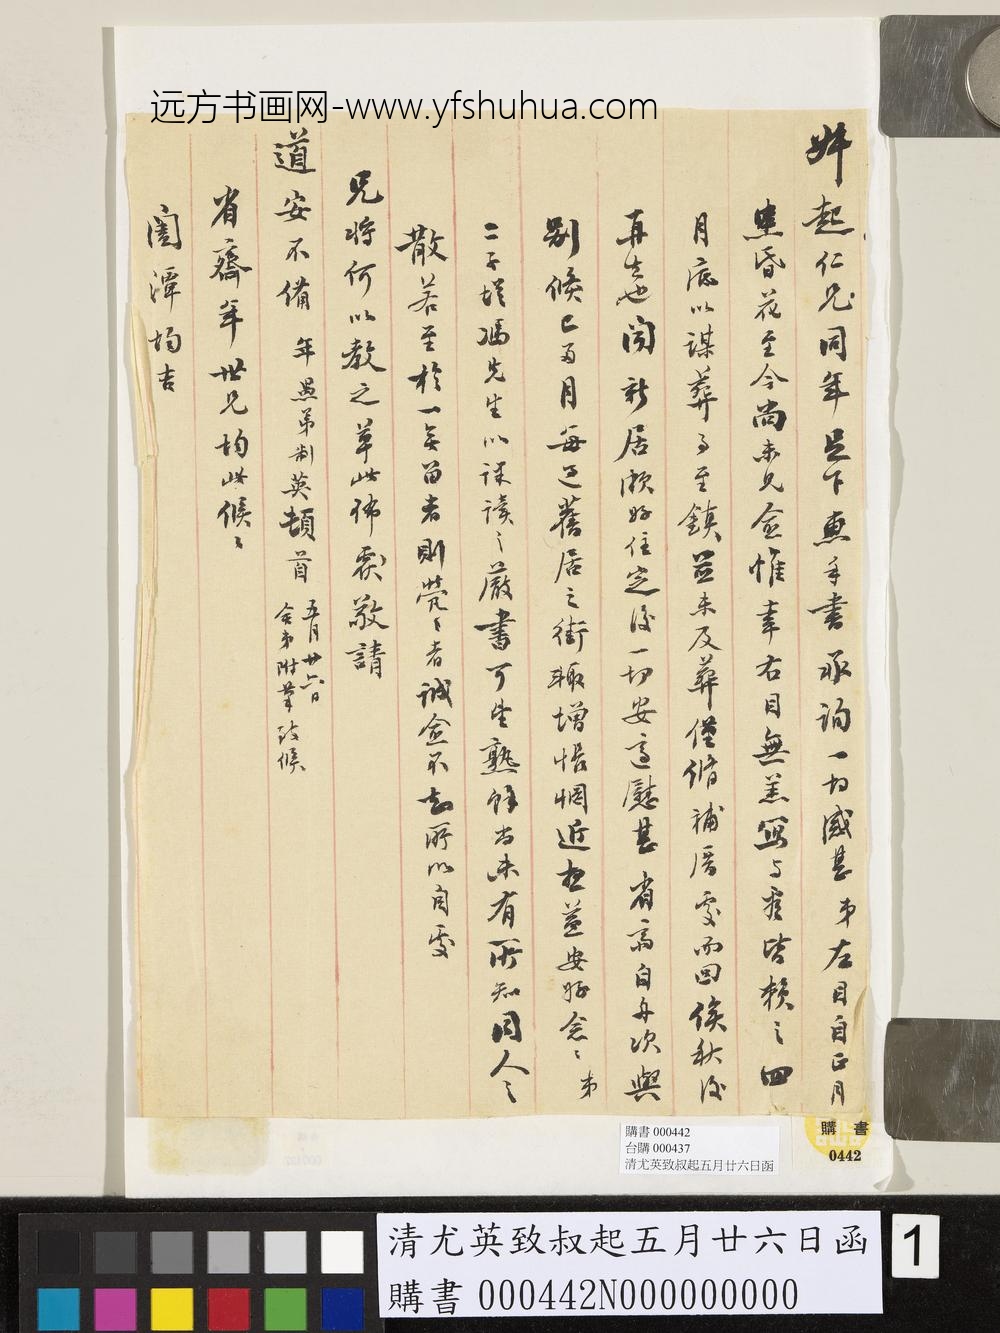 远方书画网-www.yfshuhua.com
起仁兄同年足下惠手書承詢一切感甚弟左目自正月
昏花至今尚未見愈惟幸右目無羔寫与看皆賴之四
月底以謀葬事至鎮並未及葬僅修補厝處而回俟秋後
再去也聞新居頗好住定後一切安適慰甚省齋自舟次與
別候已多月每過舊居之街輒增悵惘近想益安好念〻弟
二子從馮先生以課讀之嚴書可生熟餘尚未有所知同人之
散若至於一無留者則煢〻者誠愈不知所以自處
兄將何以教之草此布覆敬請
道安不備 年愚弟制英頓首 五月廿六日
舍弟附筆致候
省齋年世兄均此候〻
闔潭均吉
購書 000442
台購 000437
清尤英致叔起五月廿六日函
購書
0442
清尤英致叔起五月廿六日函
購書 000442N000000000
1